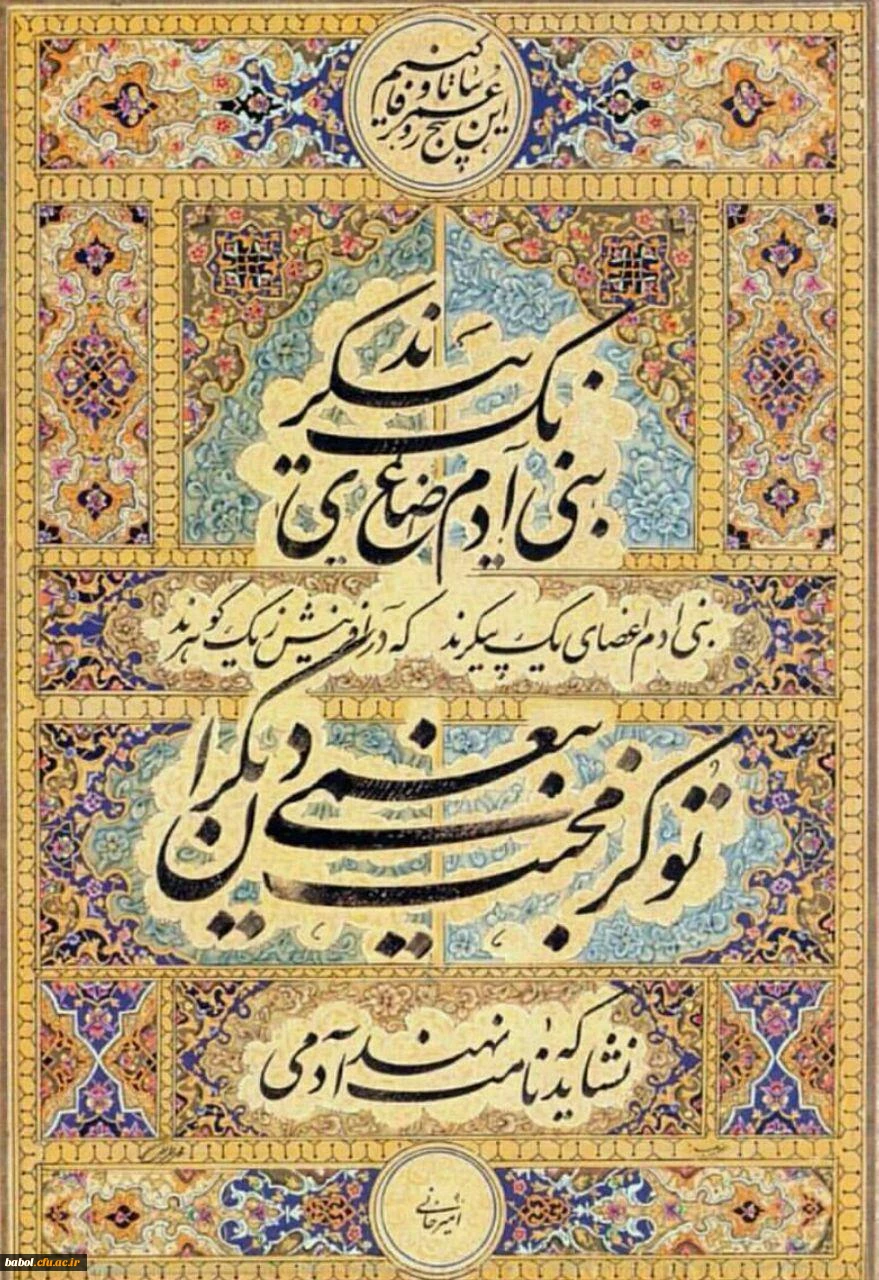 این پنج روز عمر بیا تا وفا کنیم
بنی آدم اعضای یک پیکرند
بنی آدم اعضای یک پیکرند که در آفرینش ز یک گوهرند
تو کز محنت دیگران بیغمی
نشاید که نامت نهند آدمی
امیرخانی
babol.cfu.ac.ir